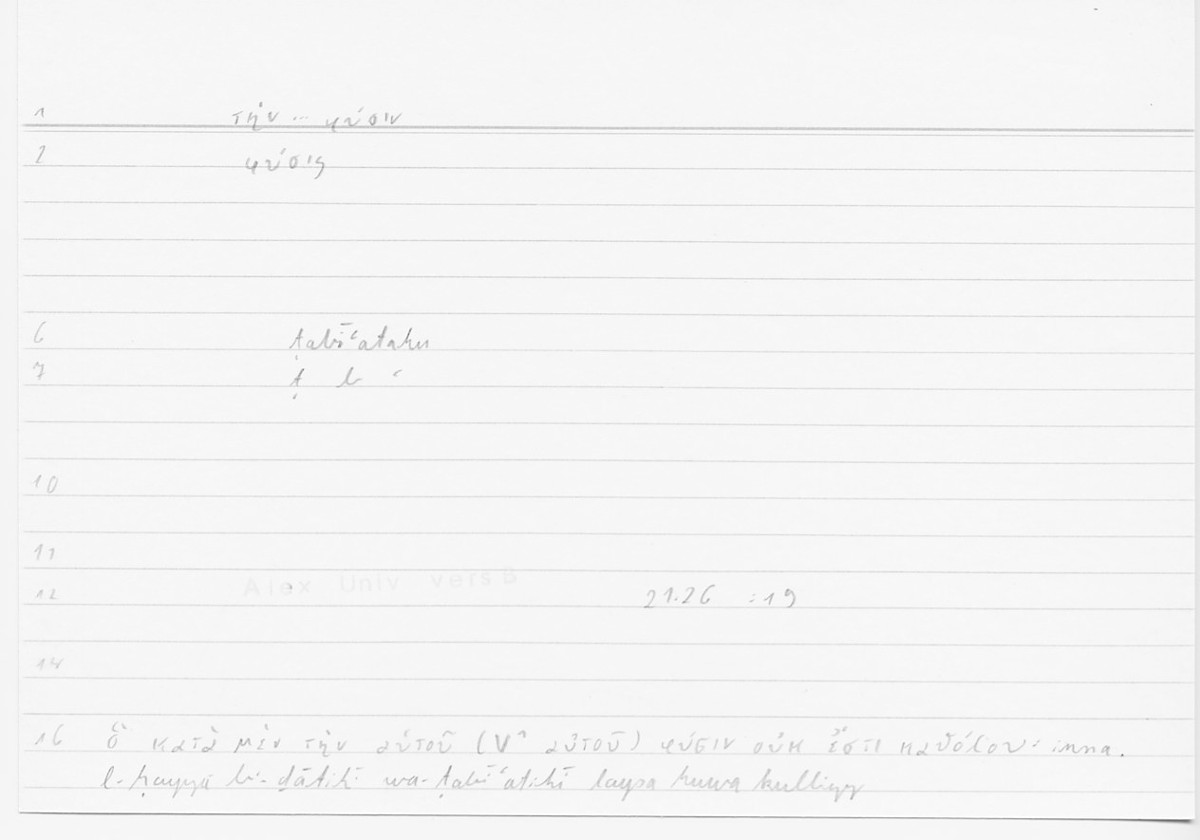 1 τὴν ... φύσιν
2 φύσις
6 ṭabīʿatahu
7 ṭ b ʿ
10
11
Alex Univ vers B
12 21.26 :19
14
16 ὃ κατὰ μὲν τὴν αὑτοῦ (V^ αὐτοῦ) φύσιν οὐκ ἔστι καθόλου : inna
l-ḥayya bi-ḏātihī wa-ṭabīʿatihī laysa huwa kulliyy